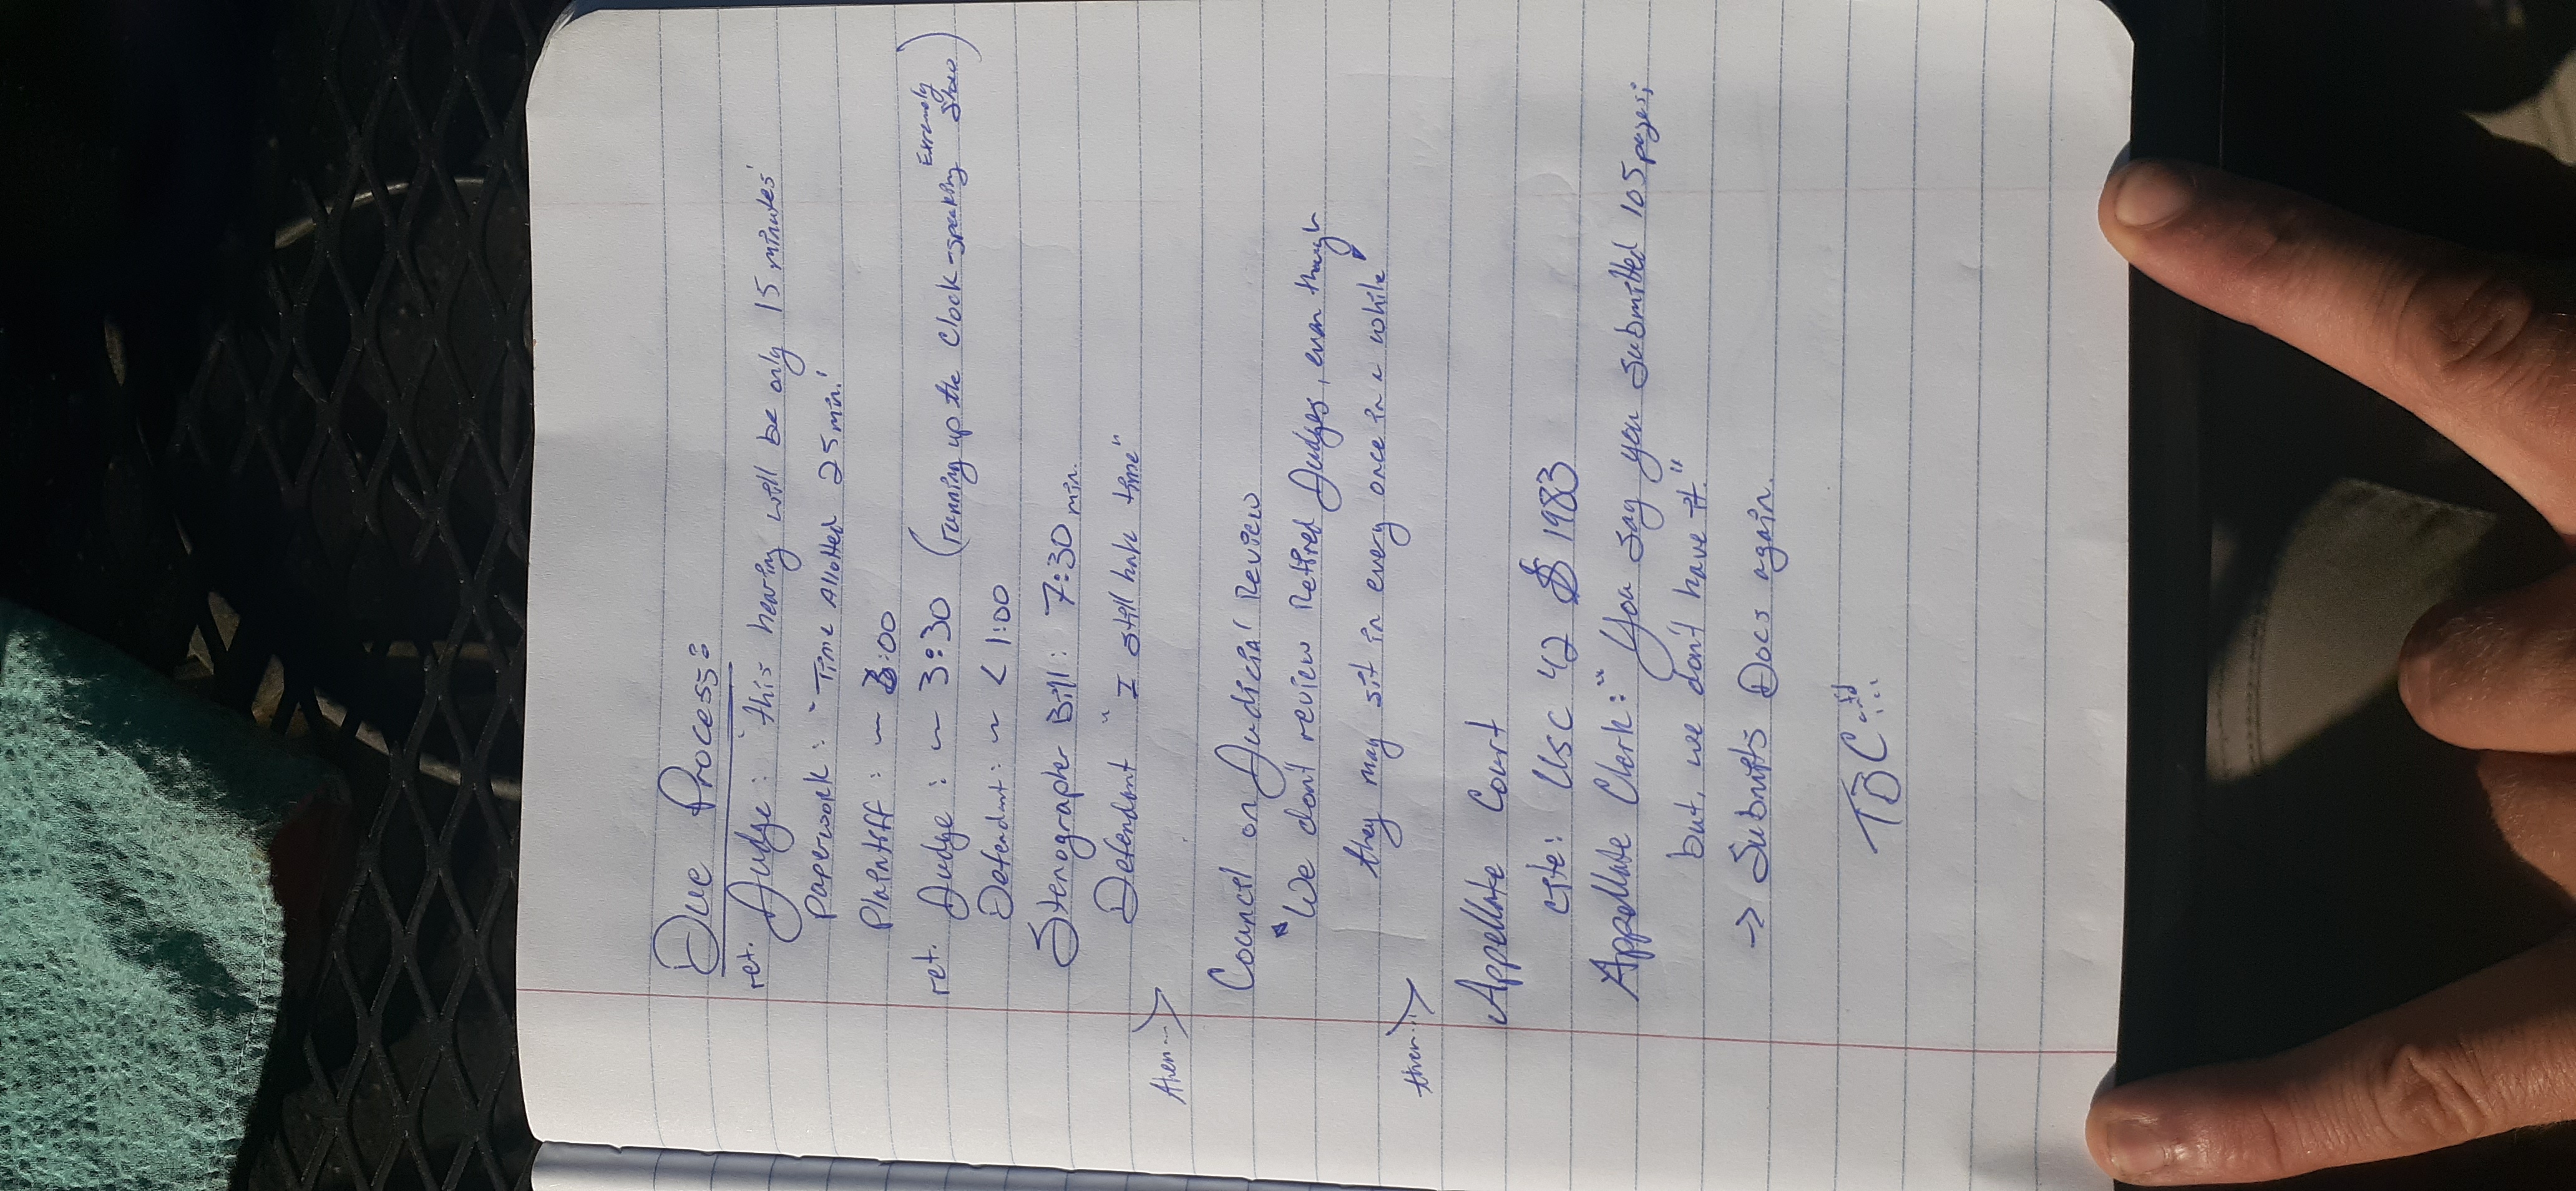 Due Process:
ret. Judge: 'this hearing will be only 15 minutes'
Paperwork: "Time Allotted 25 min.'
Plaintiff: ~ :00
ret. Judge: ~ 3:30 (running up the clock - speaking Extremely slow)
Defendant: ~ < 1:00
Stenographer Bill: 7:30 min.
Defendant "I still have time"
then...
Council on Judicial Review
"We don't review Retired Judges, even though
they may sit in every once in a while"
then...
Appellate Court
cite: USC 42 § 1983
Appellate Clerk: "You say you submitted 105 pages;
but, we don't have it."
-> Submits Docs again.